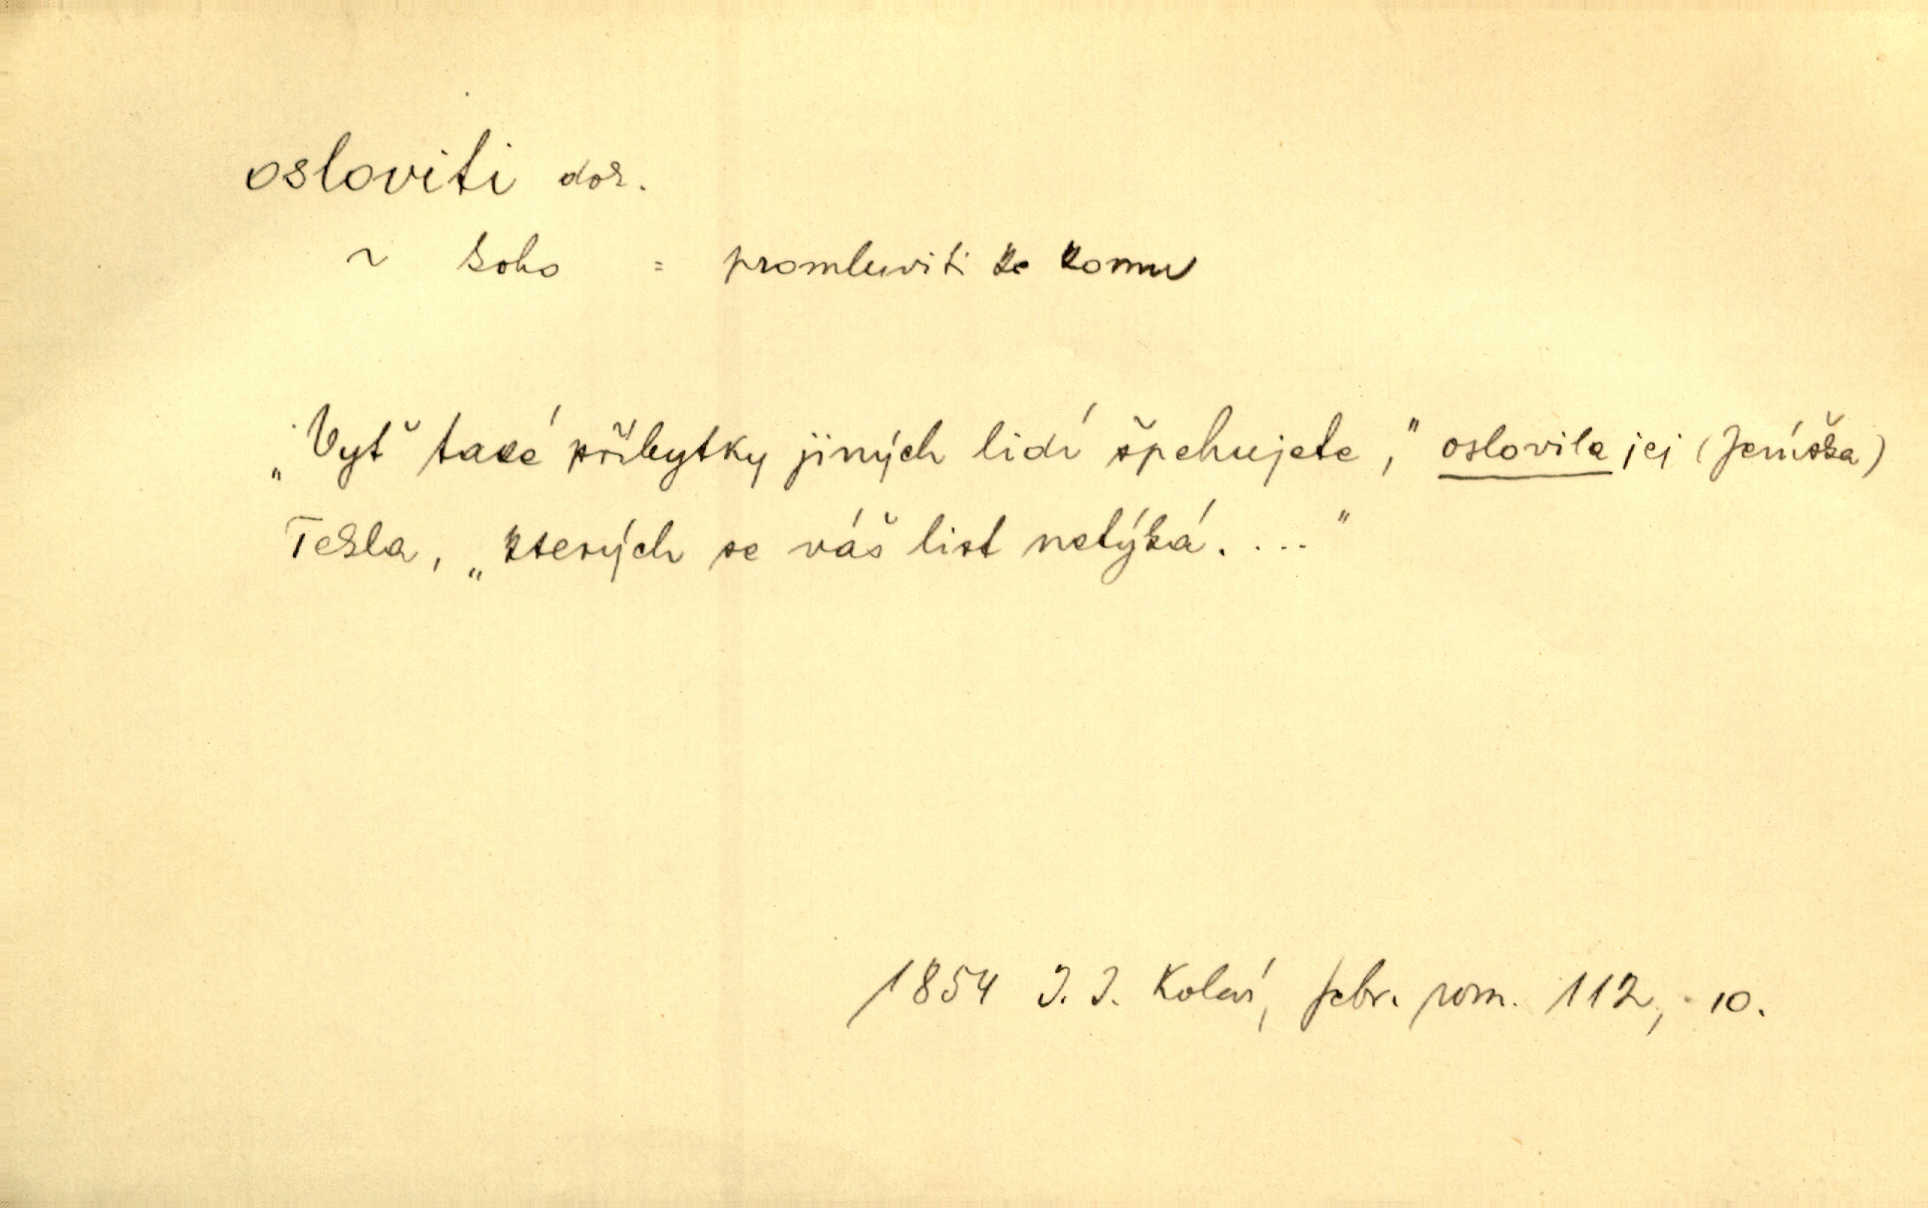 osloviti dok.
~ koho = promluviti ke komu
„Vyť také příbytky jiných lidí špehujete,“ oslovila jej (Jeníška)
Tekla, „kterých se váš list netýká. ...“
1854 J. J. Kolár, febr. rom. 112, 10.